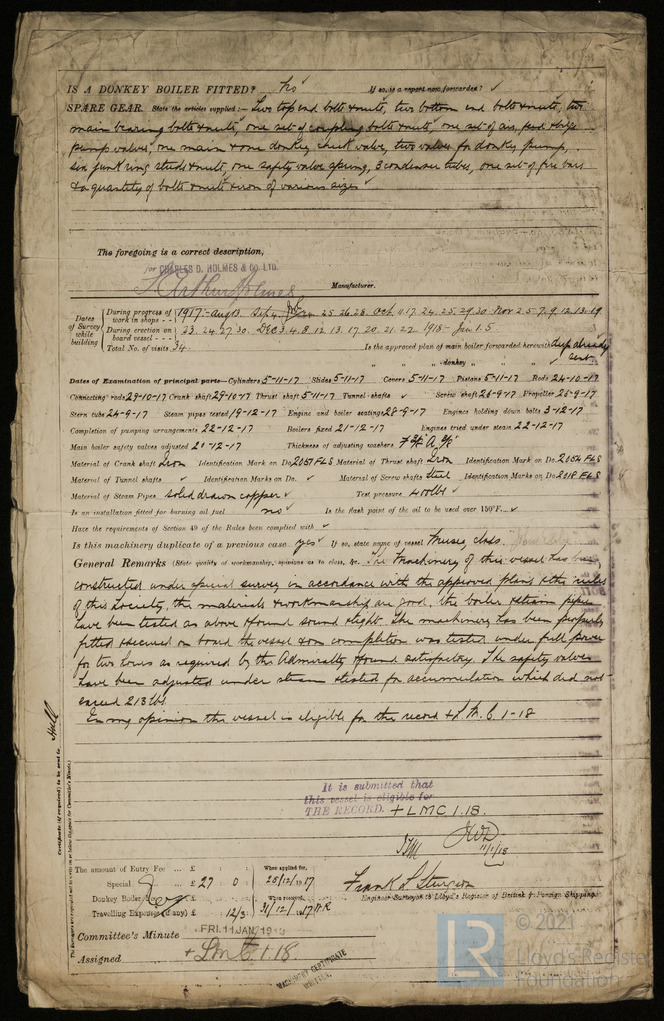 IS A DONKEY BOILER FITTED? No If so, is a report now forwarded? ✓
SPARE GEAR. State the articles supplied:— Two top end bolts & nuts, two bottom end bolts & nuts, two
main bearing bolts & nuts, one set of coupling bolts & nuts, one set of air, feed & bilge
pump valves, one main & one donkey check valve, two valves for donkey pump,
six junk ring studs & nuts, one safety valve spring, 3 condenser tubes, one set of fire bars
& a quantity of bolts & nuts & iron of various sizes
The foregoing is a correct description,
for CHARLES D. HOLMES & CO. LTD.
Arthur Holmes Manufacturer.
Dates of Survey while building
During progress of work in shops - - 1917:- Aug 13. Sep 4. 25. 26. 28. Oct 11. 17. 24. 25. 29. 30 Nov 2. 5. 7. 9. 12. 13. 19
During erection on board vessel - - - 23. 24. 27. 30. DEC 3. 4. 8. 12. 13. 17. 20. 21. 22. 1918- Jan 1. 5.
Total No. of visits 34. Is the approved plan of main boiler forwarded herewith already sent
" " " donkey " " "
Dates of Examination of principal parts—Cylinders 5-11-17 Slides 5-11-17 Covers 5-11-17 Pistons 5-11-17 Rods 24-10-17
Connecting rods 29-10-17 Crank shaft 29-10-17 Thrust shaft 5-11-17 Tunnel shafts ✓ Screw shaft 26-9-17 Propeller 25-9-17
Stern tube 24-9-17 Steam pipes tested 19-12-17 Engine and boiler seatings 28-9-17 Engines holding down bolts 3-12-17
Completion of pumping arrangements 22-12-17 Boilers fixed 21-12-17 Engines tried under steam 22-12-17
Main boiler safety valves adjusted 2-12-17 Thickness of adjusting washers
Material of Crank shaft Iron Identification Mark on Do. 2057 FLS Material of Thrust shaft Iron Identification Mark on Do. 2054 FLS
Material of Tunnel shafts ✓ Identification Marks on Do. ✓ Material of Screw shafts Steel Identification Marks on Do. 2018 FLS
Material of Steam Pipes solid drawn copper ✓ Test pressure 400 lbs ✓
Is an installation fitted for burning oil fuel no ✓ Is the flash point of the oil to be used over 150°F. ✓
Have the requirements of Section 49 of the Rules been complied with ✓
Is this machinery duplicate of a previous case yes ✓ If so, state name of vessel class.
General Remarks (State quality of workmanship, opinions as to class, &c. The machinery of this vessel has been
constructed under special survey in accordance with the approved plans & the rules
of this Society, the materials & workmanship are good. The boiler & steam pipes
have been tested as above & found sound & tight. The machinery has been properly
fitted & secured on board the vessel & on completion was tested under full power
for two hours as required by the Admiralty & found satisfactory. The safety valves
have been adjusted under steam & tested for accumulation which did not
exceed 213 lbs
In my opinion the vessel is eligible for the record + L.M.C 1-18
It is submitted that
this vessel is eligible for
THE RECORD. + LMC 1.18.
11/1/18
Hull
Certificate (if required) to be sent to
The amount of Entry Fee ... £ : : When applied for,
Special ... £ 27 : 0 : 28/12/1917
Donkey Boiler Fee ... £ : : When received,
Travelling Expenses (if any) £ : 12/3 : 31/12/1917
Frank L Sturgeon
Engineer Surveyor to Lloyd's Register of British & Foreign Shipping.
Committee's Minute FRI. 11 JAN. 1918
Assigned + LMC 1.18.
MACHINERY CERTIFICATE
WRITTEN.
LR © 2021
Lloyd's Register
Foundation